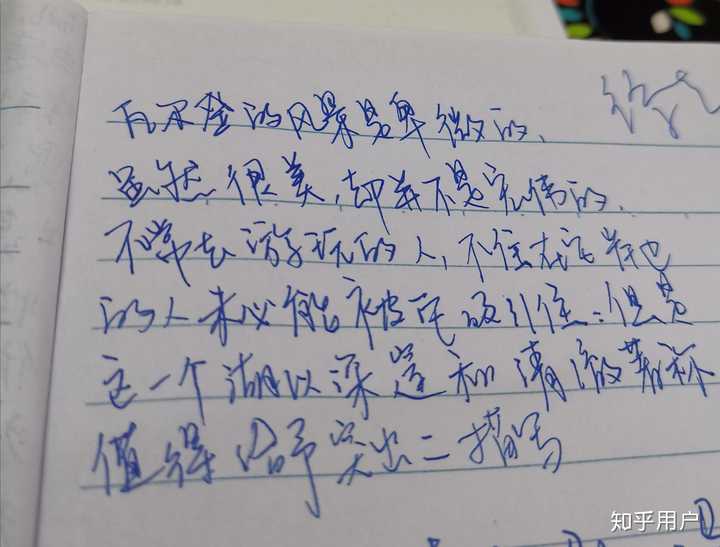 瓦尔登的风景是卑微的,
虽然很美,却并不是宏伟的,
不常去游玩的人,不住在它岸边
的人未必能被它吸引住:但是
这一个湖以深邃和清澈著称
值得给予突出 描写
知乎用户